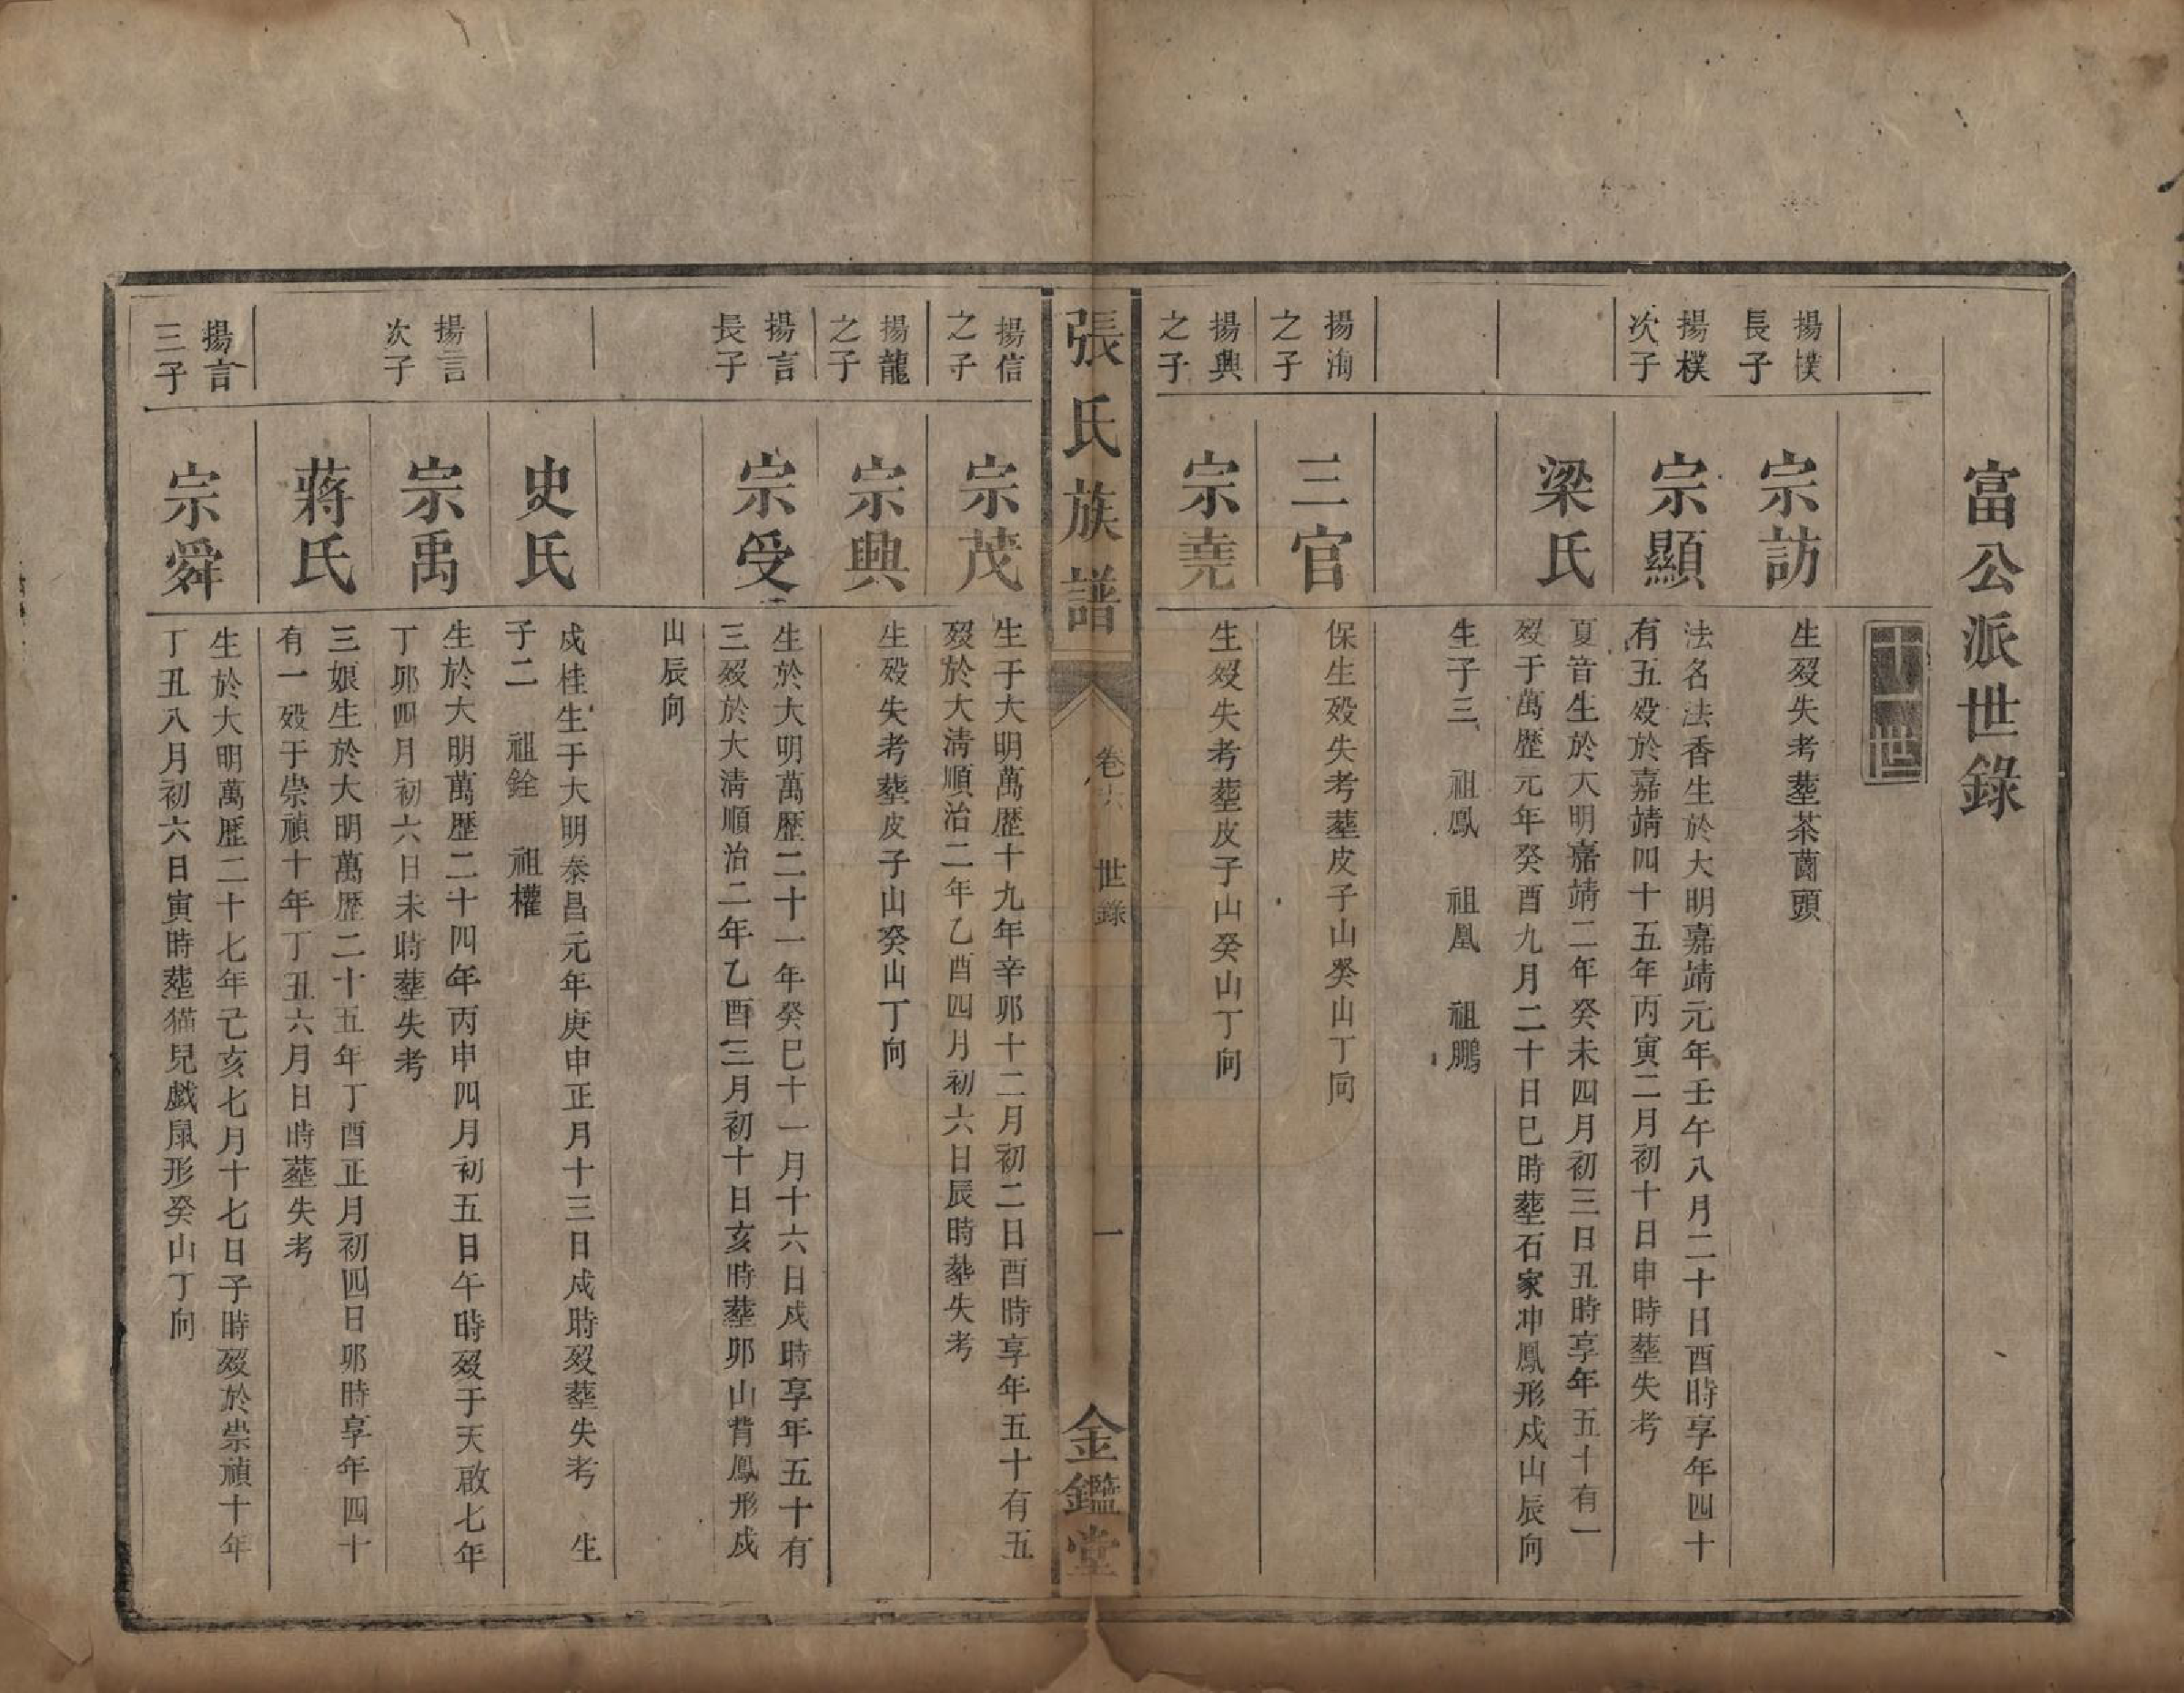 富公派世錄
十一世
揚樸
長子
宗訪
生歿失考塟茶薗頭
揚樸
次子
宗顯
法名法香生於大明嘉靖元年壬午八月二十日酉時享年四十
有五歿於嘉靖四十五年丙寅二月初十日申時塟失考
梁氏
夏音生於大明嘉靖二年癸未四月初三日丑時享年五十有一
歿于萬歷元年癸酉九月二十日巳時塟石家冲鳳形戍山辰向
生子三　祖鳳　祖凰　祖鵬
揚海
之子
三官
保生歿失考塟皮子山癸山丁向
揚興
之子
宗堯
生歿失考塟皮子山癸山丁向
張氏族譜
卷六　世錄
一
金鑑堂
揚信
之子
宗茂
生于大明萬歷十九年辛卯十二月初二日酉時享年五十有五
歿於大清順治二年乙酉四月初六日辰時塟失考
揚龍
之子
宗興
生歿失考塟皮子山癸山丁向
揚言
長子
宗受
生於大明萬歷二十一年癸巳十一月十六日戍時享年五十有
三歿於大清順治二年乙酉三月初十日亥時塟卯山背鳳形戍
山辰向
史氏
戍桂生于大明泰昌元年庚申正月十三日戍時歿塟失考　生
子二　祖銓　祖權
揚言
次子
宗禹
生於大明萬歷二十四年丙申四月初五日午時歿于天啟七年
丁卯四月初六日未時塟失考
蔣氏
三娘生於大明萬歷二十五年丁酉正月初四日卯時享年四十
有一歿于崇禎十年丁丑六月日時塟失考
揚言
三子
宗舜
生於大明萬歷二十七年己亥七月十七日子時歿於崇禎十年
丁丑八月初六日寅時塟猫兒戲鼠形癸山丁向